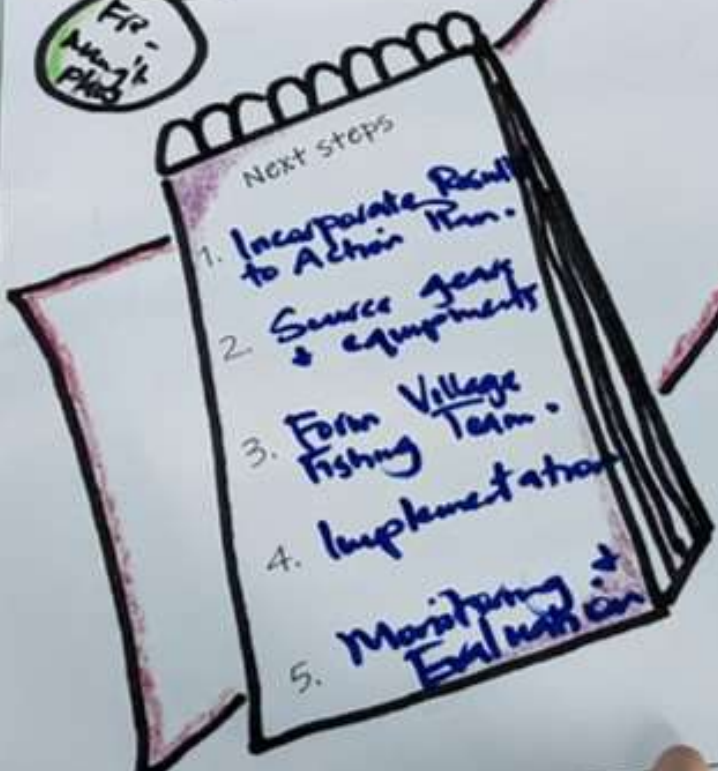 Next steps
1. Incorporate Result
to Action Plan.
2. Source gears
+ equipments
3. Form Village
Fishing Team.
4. Implementation
5. Monitoring +
Evaluation